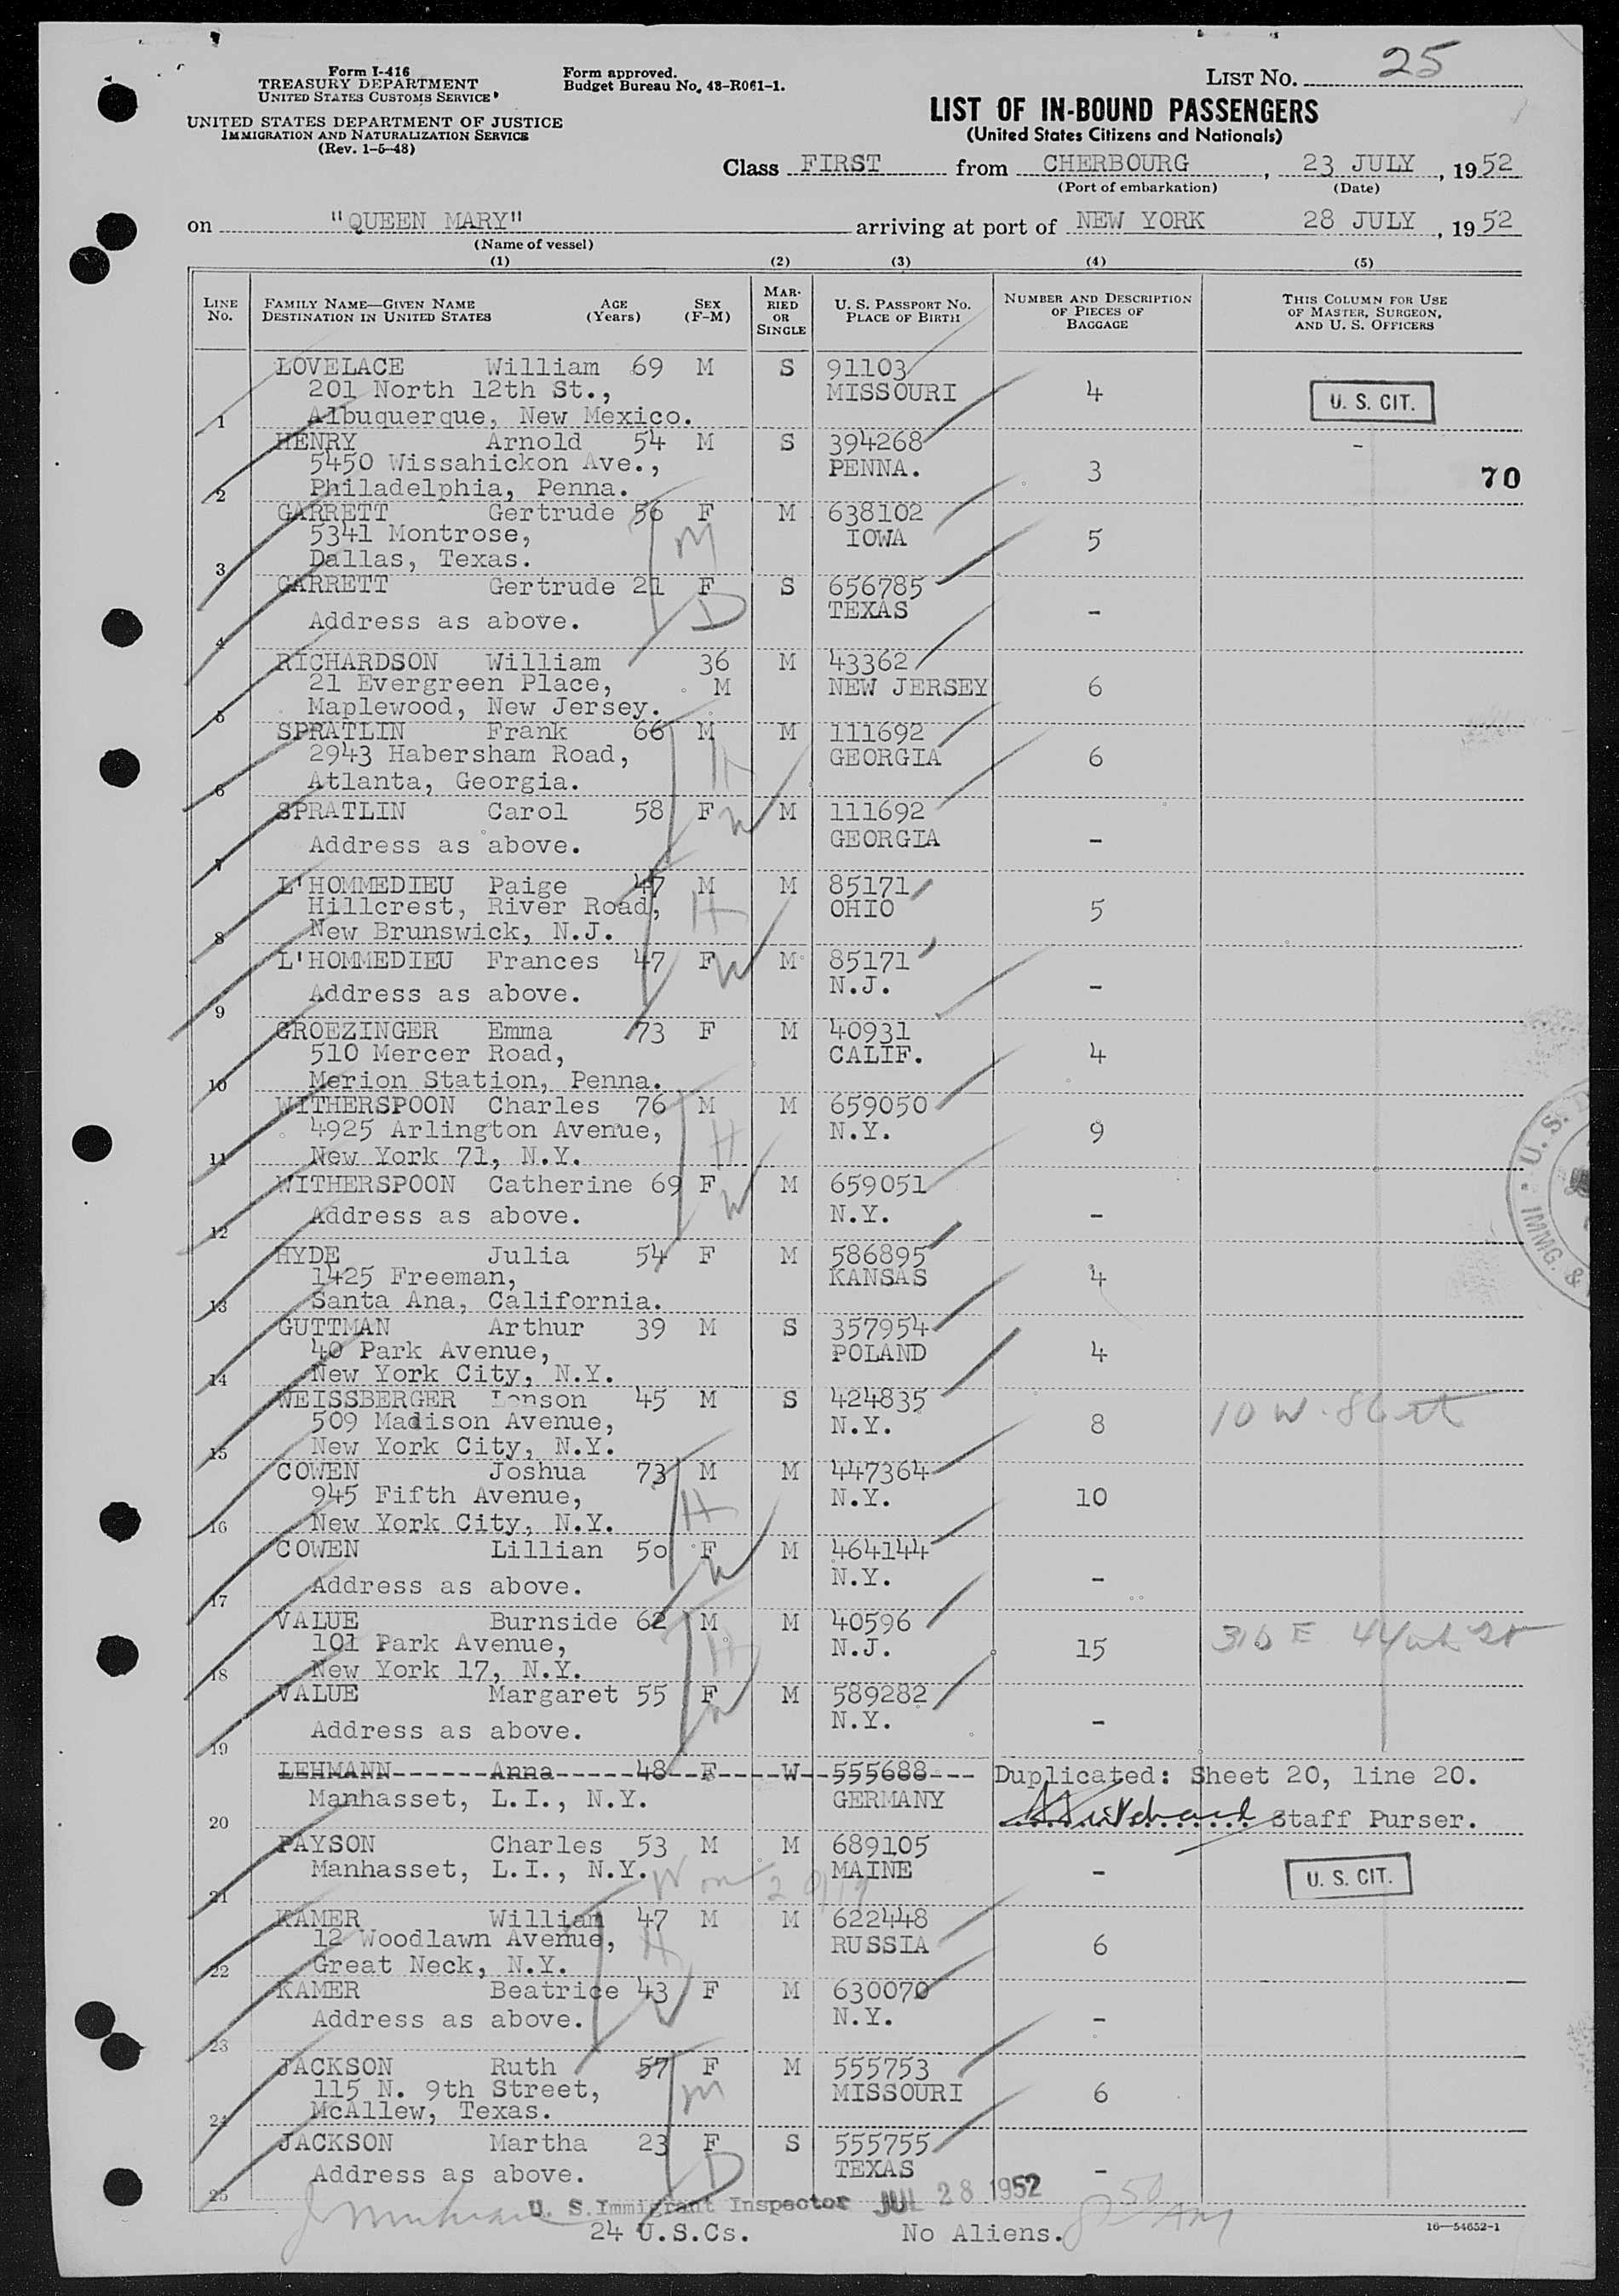 Form I-416
TREASURY DEPARTMENT
UNITED STATES CUSTOMS SERVICE
UNITED STATES DEPARTMENT OF JUSTICE
IMMIGRATION AND NATURALIZATION SERVICE
(Rev. 1-5-48)
Form approved.
Budget Bureau No. 43-R061-1.
LIST NO. 25
LIST OF IN-BOUND PASSENGERS
(United States Citizens and Nationals)
Class FIRST from CHERBOURG, 23 JULY, 1952
(Port of embarkation) (Date)
on "QUEEN MARY" arriving at port of NEW YORK 28 JULY, 1952
(Name of vessel)
(1) (2) (3) (4) (5)
LINE NO. FAMILY NAME—GIVEN NAME DESTINATION IN UNITED STATES AGE (Years) SEX (F-M) MARRIED OR SINGLE U. S. PASSPORT NO. PLACE OF BIRTH NUMBER AND DESCRIPTION OF PIECES OF BAGGAGE THIS COLUMN FOR USE OF MASTER, SURGEON, AND U. S. OFFICERS
LOVELACE William 69 M S 91103
201 North 12th St., MISSOURI 4 U. S. CIT.
1 Albuquerque, New Mexico.
HENRY Arnold 54 M S 394268 -
5450 Wissahickon Ave., PENNA. 3 70
2 Philadelphia, Penna.
GARRETT Gertrude 56 F M 638102
5341 Montrose, M IOWA 5
3 Dallas, Texas.
GARRETT Gertrude 21 F S 656785
Address as above. D TEXAS -
4
RICHARDSON William 36 M 43362
21 Evergreen Place, M NEW JERSEY 6
5 Maplewood, New Jersey.
SPRATLIN Frank 66 M M 111692
2943 Habersham Road, H GEORGIA 6
6 Atlanta, Georgia.
SPRATLIN Carol 58 F W M 111692
Address as above. GEORGIA -
7
L'HOMMEDIEU Paige 47 M M 85171
Hillcrest, River Road, H OHIO 5
8 New Brunswick, N.J.
L'HOMMEDIEU Frances 47 F W M 85171
Address as above. N.J. -
9
GROEZINGER Emma 73 F M 40931
510 Mercer Road, CALIF. 4
10 Merion Station, Penna.
WITHERSPOON Charles 76 M M 659050
4925 Arlington Avenue, H N.Y. 9
11 New York 71, N.Y.
WITHERSPOON Catherine 69 F W M 659051
Address as above. N.Y. -
12
HYDE Julia 54 F M 586895
1425 Freeman, KANSAS 4
13 Santa Ana, California.
GUTTMAN Arthur 39 M S 357954
40 Park Avenue, POLAND 4
14 New York City, N.Y.
WEISSBERGER 45 M S 424835
509 Madison Avenue, N.Y. 8 10 W. 86 st
15 New York City, N.Y.
COWEN Joshua 73 M M 447364
945 Fifth Avenue, H N.Y. 10
16 New York City, N.Y.
COWEN Lillian 50 F W M 464144
Address as above. N.Y. -
17
VALUE Burnside 62 M M 40596
101 Park Avenue, H N.J. 15 E 44th St
18 New York 17, N.Y.
VALUE Margaret 55 F W M 589282
Address as above. N.Y. -
19
LEHMANN Anna 48 F W 555688 Duplicated: Sheet 20, line 20.
Manhasset, L.I., N.Y. GERMANY
20 Staff Purser.
PAYSON Charles 53 M M 689105
Manhasset, L.I., N.Y. MAINE - U. S. CIT.
21
KAMER William 47 M M 622448
12 Woodlawn Avenue, H RUSSIA 6
22 Great Neck, N.Y.
KAMER Beatrice 43 F M 630070
Address as above. W N.Y. -
23
JACKSON Ruth 57 F M 555753
115 N. 9th Street, M MISSOURI 6
24 McAllew, Texas.
JACKSON Martha 23 F S 555755
Address as above. D TEXAS -
25
U. S. Immigrant Inspector JUL 28 1952
24 U.S.Cs. No Aliens.
16—54652-1
U. S. D
IMMG. &